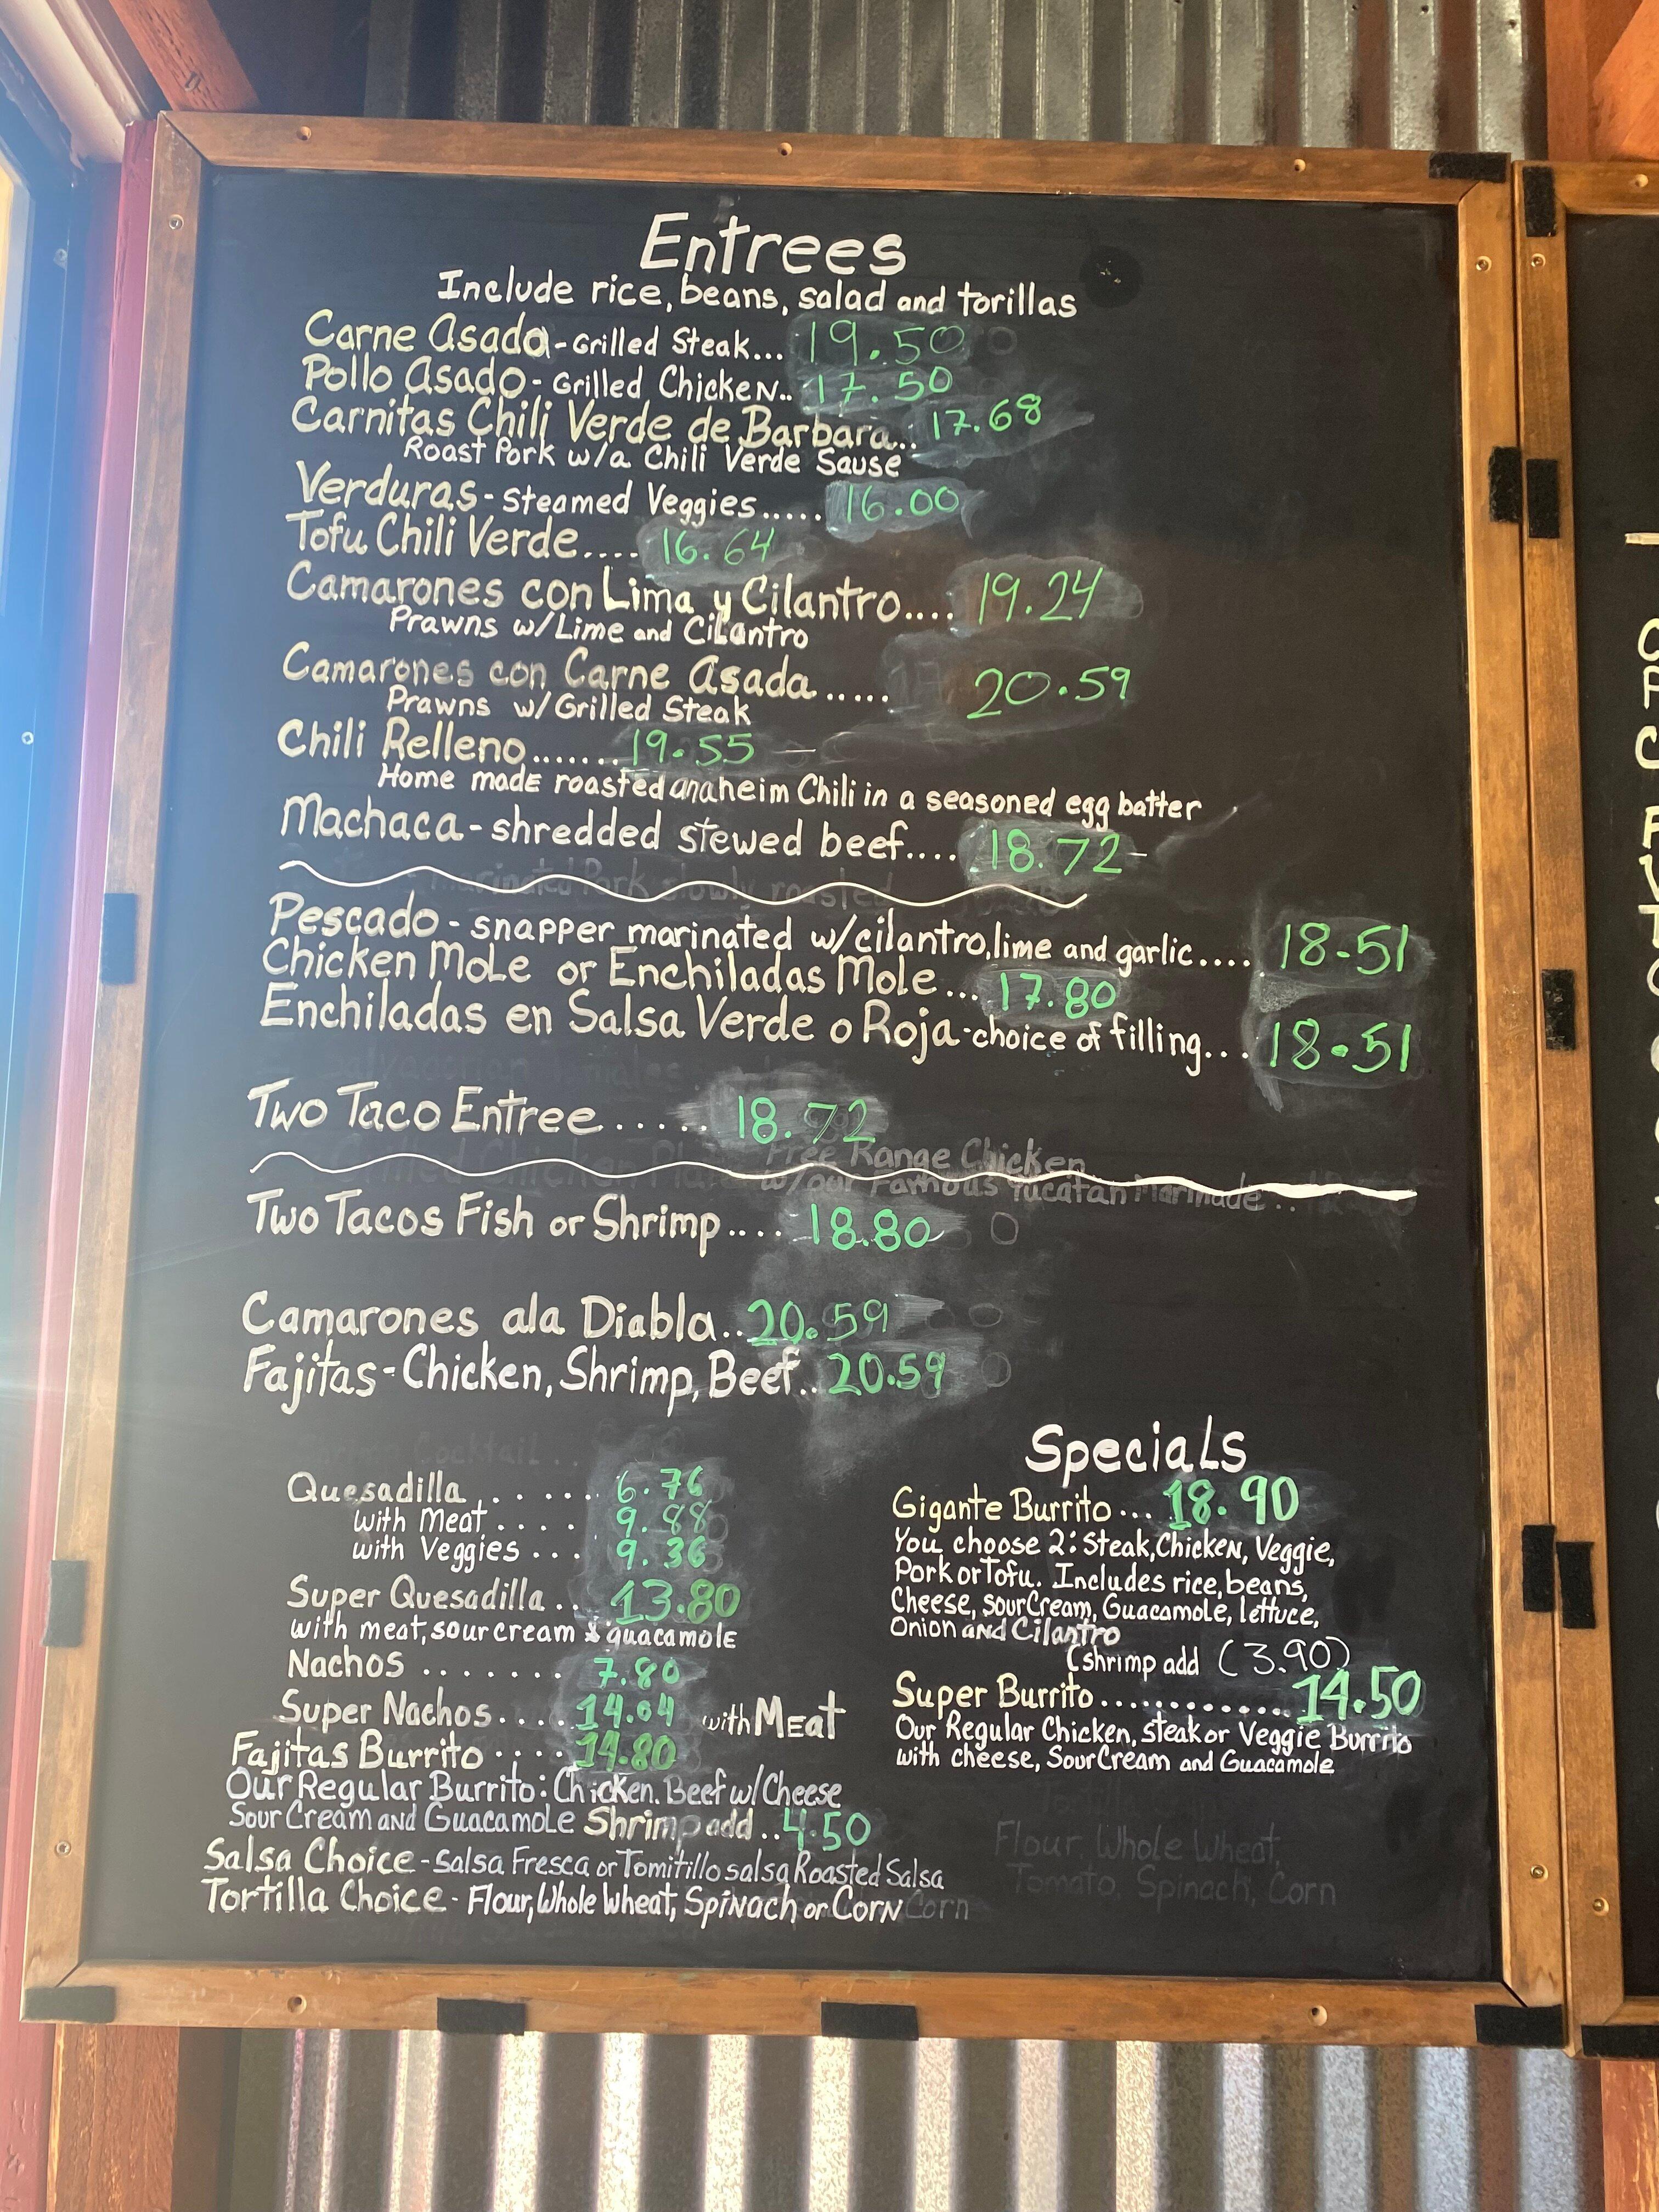 Entrees
Include rice, beans, salad and torillas
Carne Asada - Grilled Steak... 19.50
Pollo Asado - Grilled Chicken.. 17.50
Carnitas Chili Verde de Barbara... 17.68
Roast Pork w/a Chili Verde Sause
Verduras - Steamed Veggies..... 16.00
Tofu Chili Verde.... 16.64
Camarones con Lima y Cilantro.... 19.24
Prawns w/Lime and Cilantro
Camarones con Carne Asada..... 20.59
Prawns w/Grilled Steak
Chili Relleno....... 19.55
Home made roasted anaheim Chili in a seasoned egg batter
Machaca - shredded stewed beef.... 18.72
Pescado - snapper marinated w/cilantro, lime and garlic.... 18.51
Chicken Mole or Enchiladas Mole... 17.80
Enchiladas en Salsa Verde o Roja - choice of filling... 18.51
Two Taco Entree...... 18.72
Free Range Chicken
w/our Famous Yucatan Marinade..
Two Tacos Fish or Shrimp.... 18.80
Camarones ala Diabla.. 20.59
Fajitas - Chicken, Shrimp, Beef.. 20.59
Quesadilla...... 6.76
with Meat.... 9.88
with Veggies... 9.36
Super Quesadilla.. 13.80
with meat, sour cream & guacamole
Nachos....... 7.80
Super Nachos.... 14.04 with Meat
Fajitas Burrito.... 14.80
Our Regular Burrito: Chicken. Beef w/Cheese
Sour Cream and Guacamole Shrimp add.. 4.50
Salsa Choice - Salsa Fresca or Tomitillo salsa Roasted Salsa
Tortilla Choice - Flour, Whole Wheat, Spinach or Corn Corn
Specials
Gigante Burrito... 18.90
You choose 2: Steak, Chicken, Veggie,
Pork or Tofu. Includes rice, beans,
Cheese, sour Cream, Guacamole, lettuce,
Onion and Cilantro
(shrimp add (3.90)
Super Burrito............. 14.50
Our Regular Chicken, steak or Veggie Burrito
with cheese, Sour Cream and Guacamole
Flour, Whole Wheat,
Tomato, Spinach, Corn